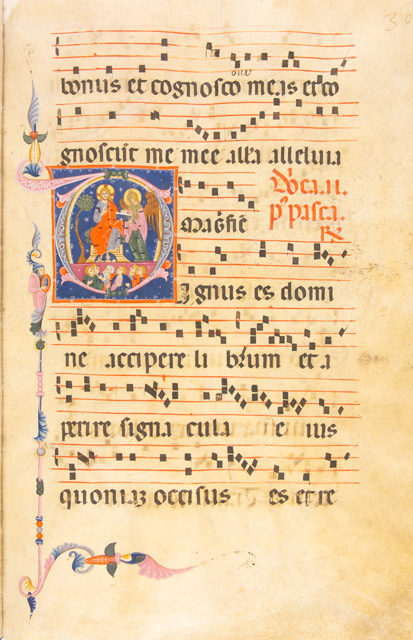 ouis
bonus et cognosco meas et co
gnoscūt me mee alła alleluia
Magn̄ic̄ Dn̄ca. ii.
p' pasca.
R̄
Ignus es domi
ne accipere li brum et a
perire signa cula e ius
quoniaʒ occisus es et re